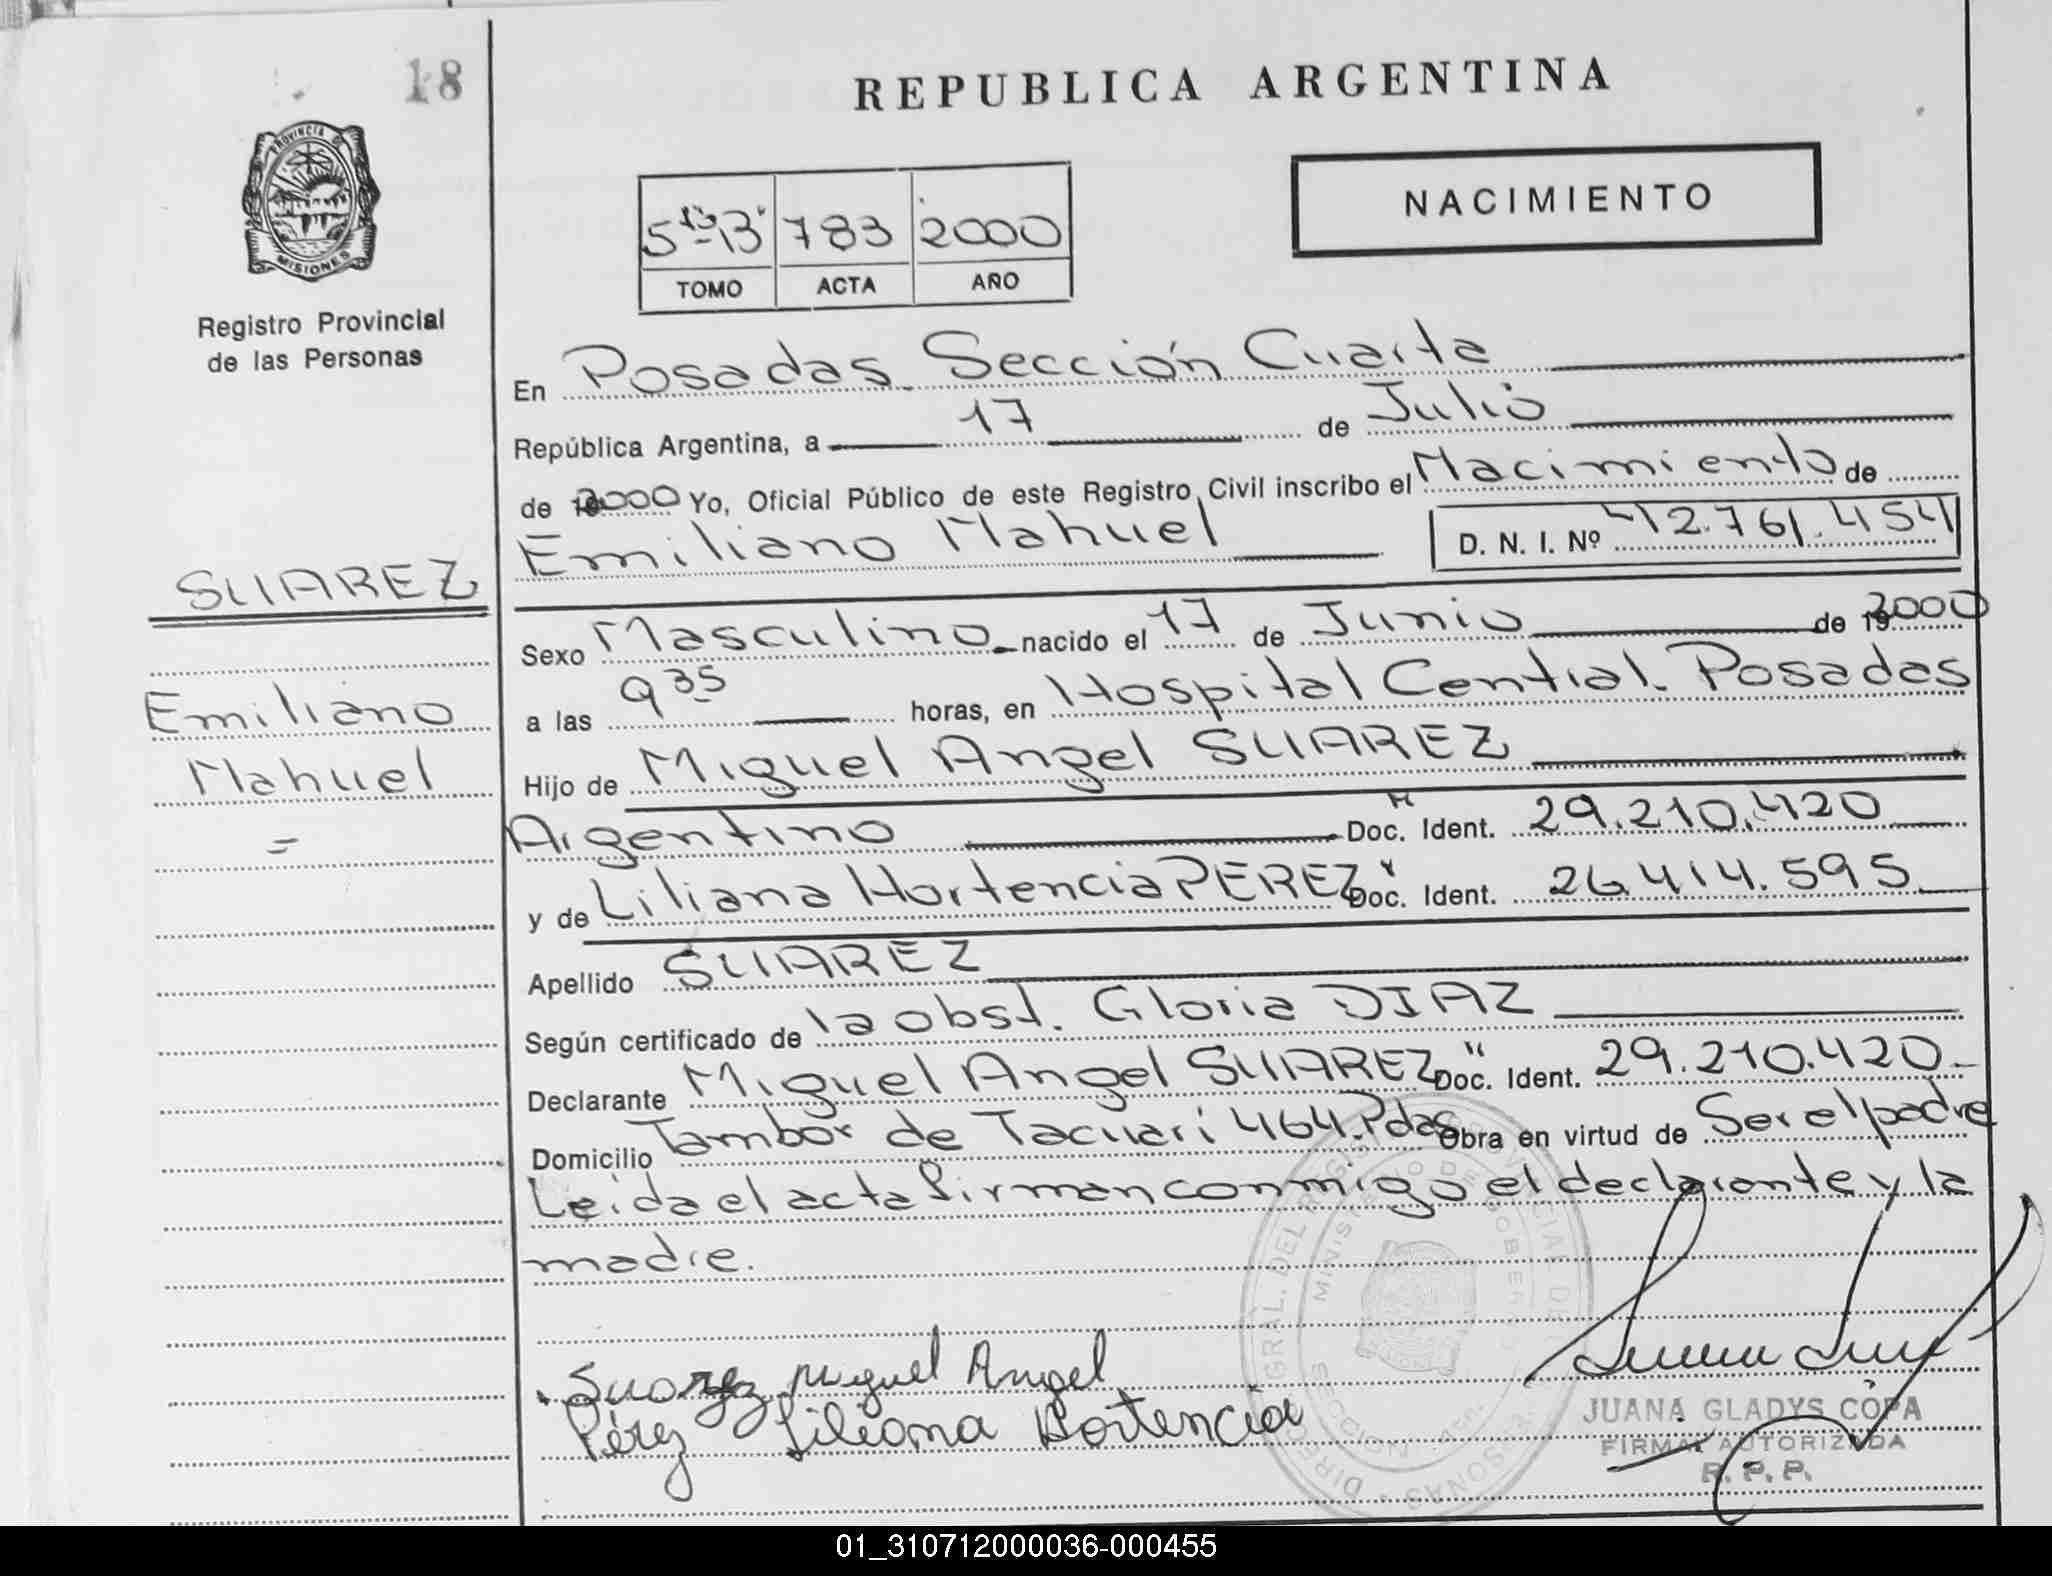 18
REPUBLICA ARGENTINA
PROVINCIA DE
MISIONES
NACIMIENTO
783 2000
TOMO ACTA AÑO
Registro Provincial
de las Personas
En Posadas. Sección Cuarta
República Argentina, a 17 de Julio
de 2000 Yo, Oficial Público de este Registro Civil inscribo el Nacimiento de
Emiliano Nahuel D. N. I. Nº 42.761.454
SUAREZ
Emiliano
Nahuel
=
Sexo Masculino nacido el 17 de Junio de 2000
a las 9 35 horas, en Hospital Central. Posadas
Hijo de Miguel Angel SUAREZ
Argentino Doc. Ident. 29.210.420
y de Liliana Hortencia PEREZ Doc. Ident. 26.414.595
Apellido SUAREZ
Según certificado de la obst. Gloria DIAZ
Declarante Miguel Angel SUAREZ " Doc. Ident. 29.210.420
Domicilio Tambor de Tacuari 464. Pdas Obra en virtud de Ser el padre
Leida el acta firman conmigo el declarante y la
madre.
Suarez Miguel Angel
Pérez Liliana Hortencia
JUANA GLADYS COPA
FIRMA AUTORIZADA
R. P. P.
01_310712000036-000455